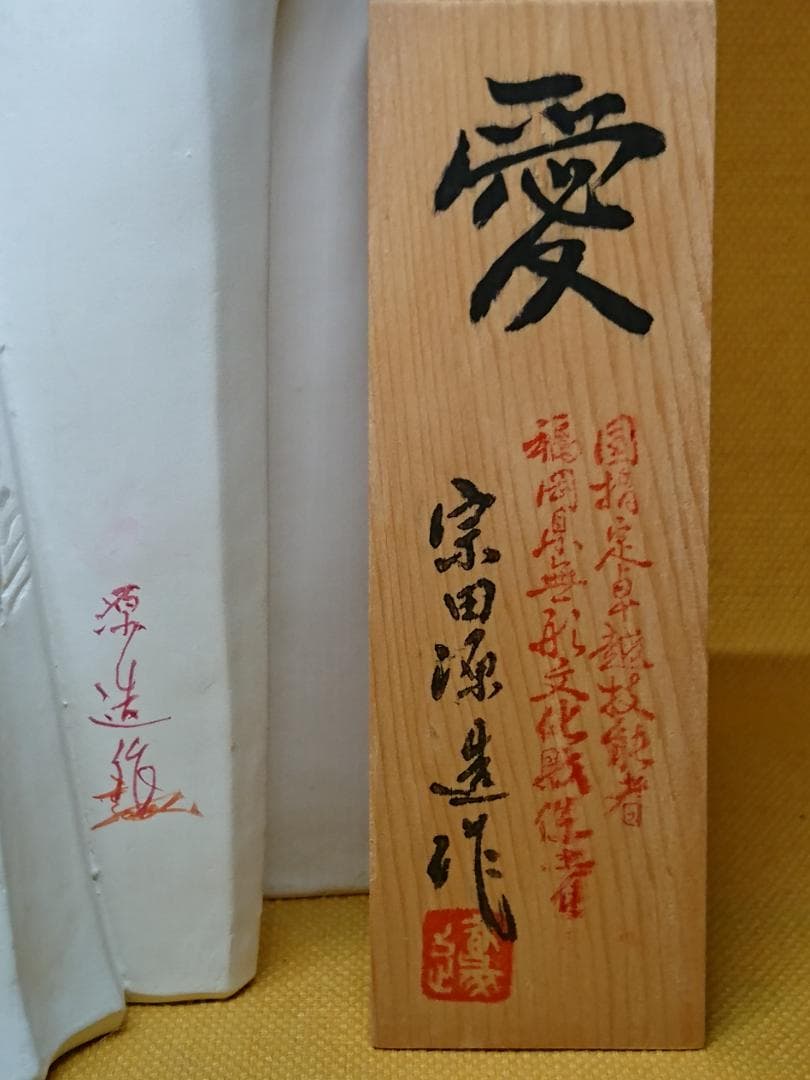 愛
国指定卓越技能者
福岡県無形文化財保持者
宗田源造作
源造